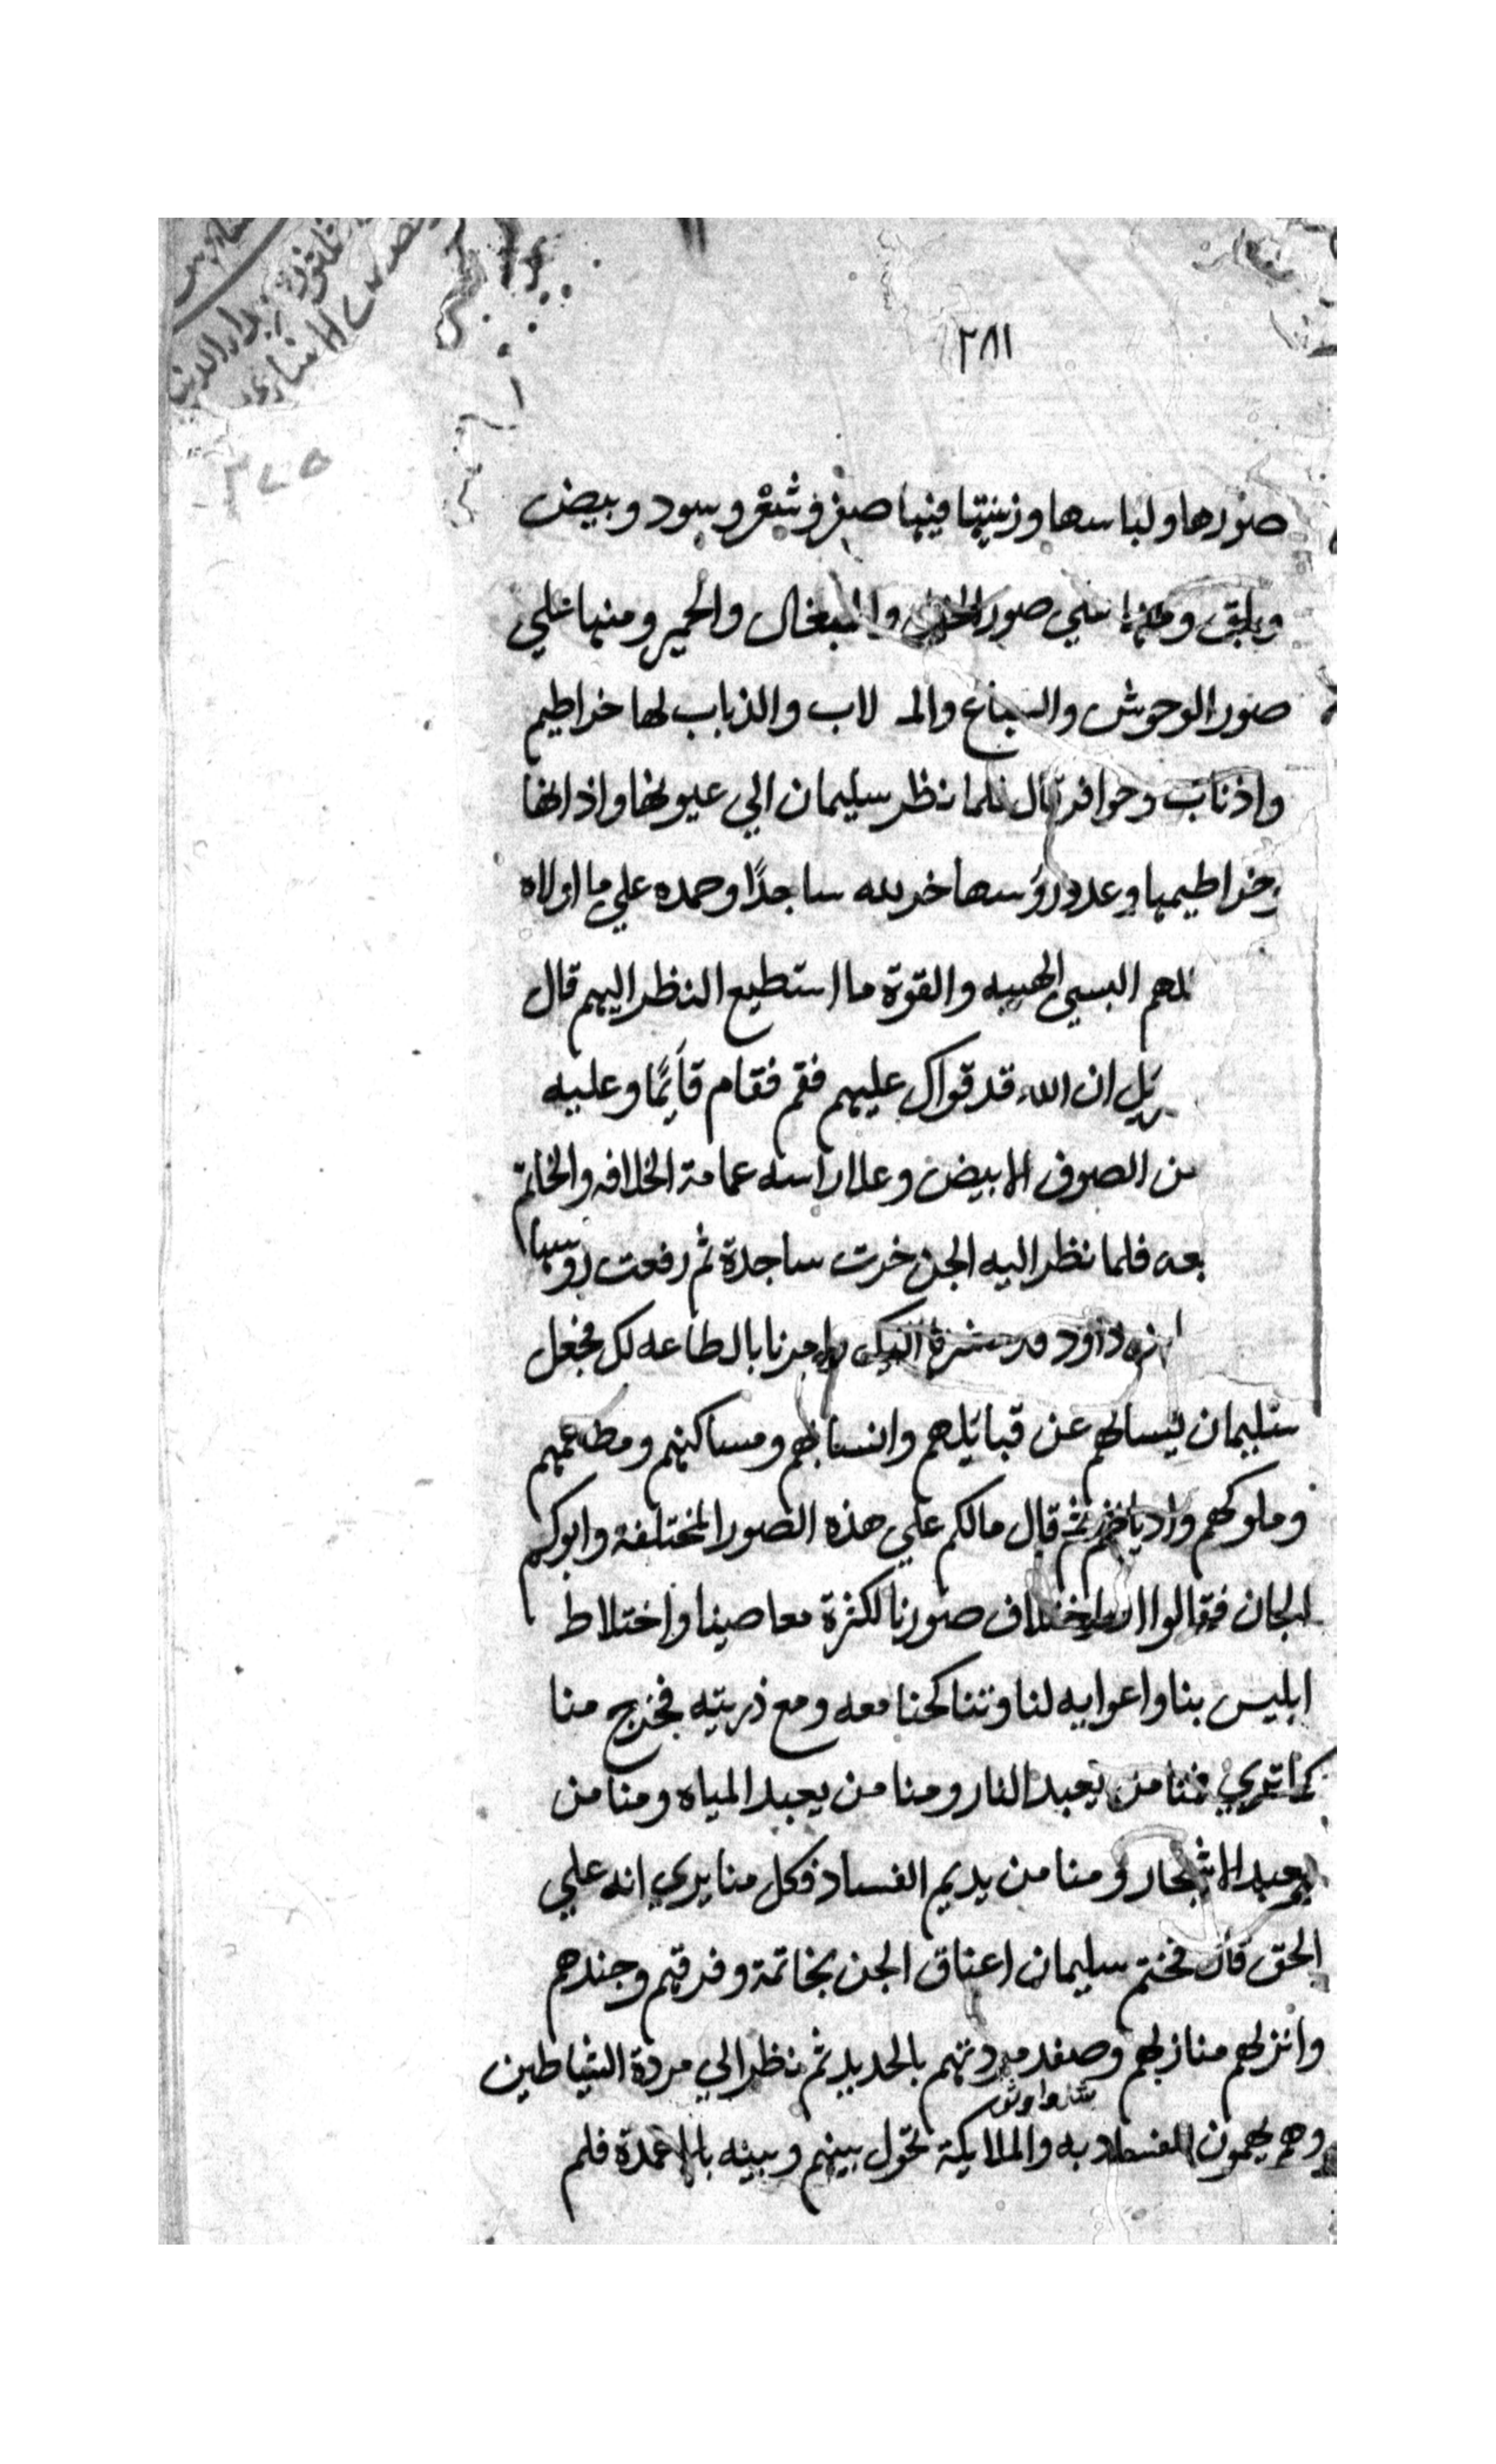 ٢٨١
٣٧٥
صورها ولباسها وزينتها فيها صفر وشقر وسود وبيض
وبلق ومنها علي صور الخيل والبغال والحمير ومنها علي
صور الوحوش والسباع والـ لاب والذباب لها خراطيم
واذناب وحوافر قال فلما نظر سليمان الي عيونها واذانها
وخراطيمها وعدد روسها خر لله ساجدًا وحمده علي ما اولاه
اللهم البسني الهيبه والقوة ما استطيع النظر اليهم قال
ان الله قد قواك عليهم فقم فقام قآيمًا وعليه
من الصوف الابيض وعلا راسه عمامة الخلافه والخاتم
فلما نظر اليه الجن خرت ساجدة ثم رفعت روسها
داود قد اليك بالطاعه لك فجعل
سليمان يسالهم عن قبايلهم وانسابهم ومساكنهم ومطعمهم
وملوكهم واديانهم ثم قال مالكم علي هذه الصور المختلفة وابوكم
الجان فقالوا اختلاف صورنا لكثرة معاصينا واختلاط
ابليس بنا واعوايه لنا وتناكحنا معه ومع ذريته فخرج منا
كما تري فمنا من يعبد النار ومنا من يعبد المياه ومنا من
يعبد الاشجار ومنا من يديم الفساد فكل منا يري انه علي
الحق قال فختم سليمان اعناق الجن بخاتمة وفرقهم وجندهم
وانزلهم منازلهم وصفد مردتهم بالحديد ثم نظر الي مردة الشياطين
وهم يهمون به والملايكة تحول بينهم وبينه بالاعمدة فلم